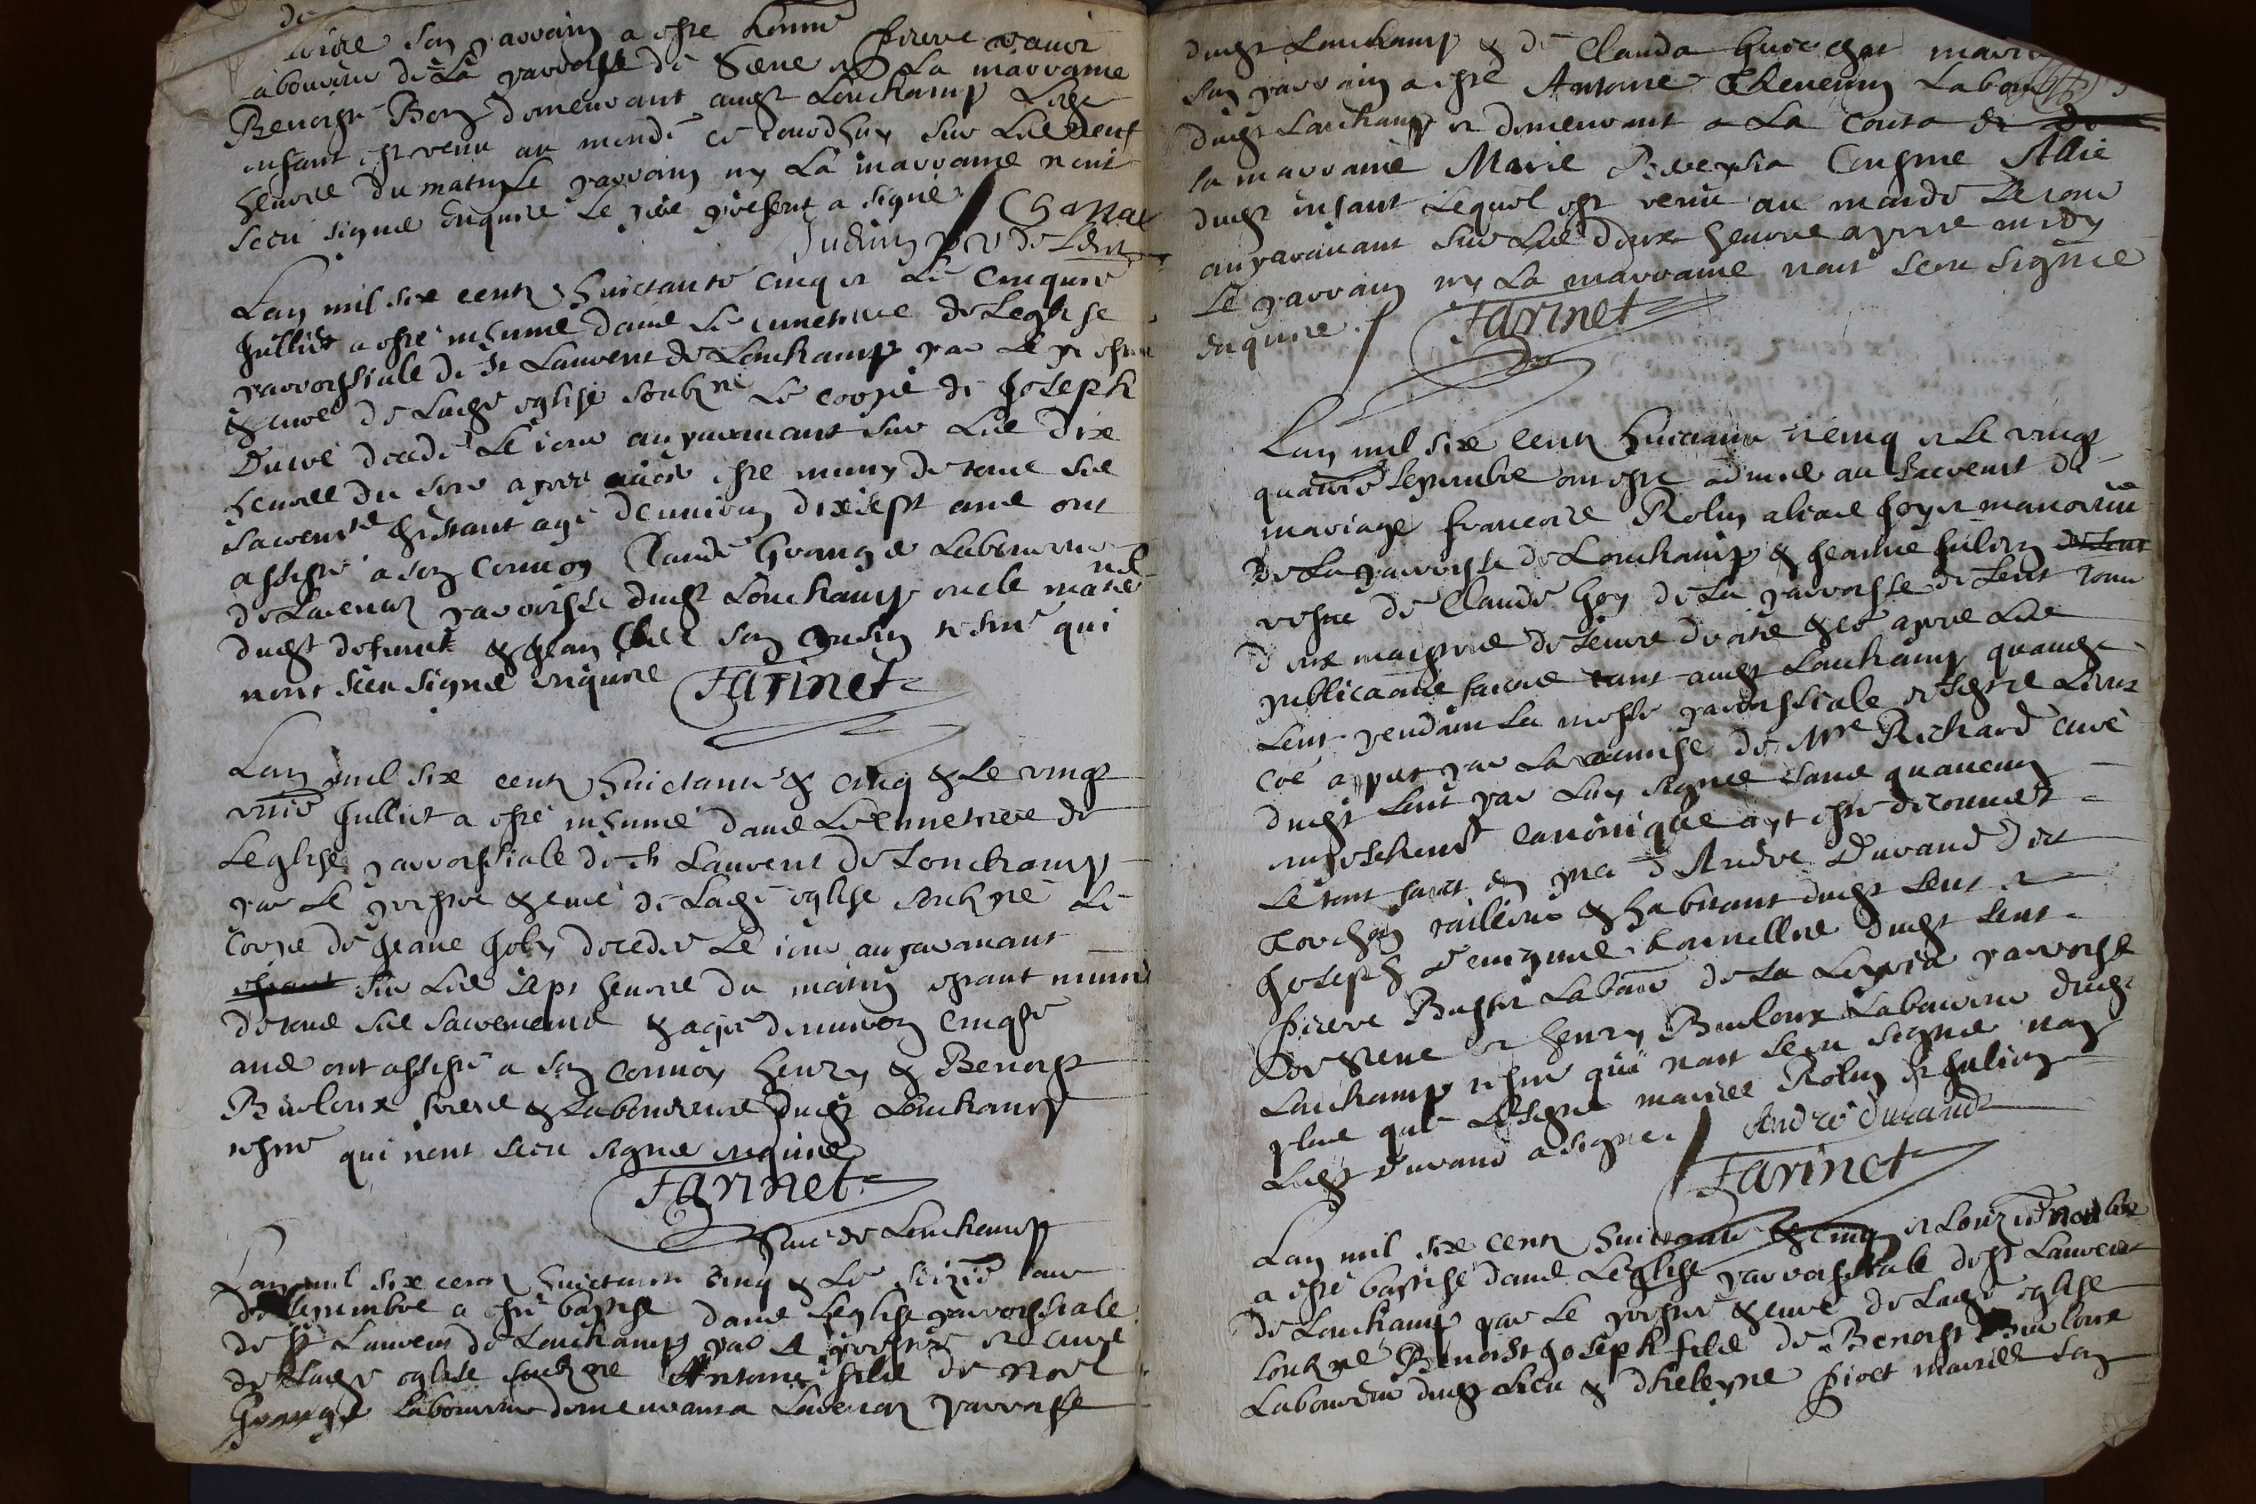 de
son parrain a este honne pierre
laboureur de la parroisse de Sene et la marraine
Benoiste Bon demeurant audt Lonchamp Ledt
enfant est venu au monde ce jourdhuy sur les neuf
heures du matin le parrain ny la marraine nont
sceu signer enquire le pere present a signé
Lan mil six cents huictante cinq et le cinquie
Julliet a esté inhumé dans le cimetiere de Leglise
parroissiale de St Laurent de Lonchamp par le prestre
& curé de ladte eglise soubzné le corps de Joseph
decedé le jour auparavant sur les dix
heures du soir apres avoir esté muny de tous ses
sacrents estant agé denviron dixsept ans ont
assisté a son convoy Claude Grange laboureur
de parroisse dudt Lonchamp oncle maternel
dudt defunct & Jean son cousin tesms qui
nont sceu signer enquire
Farinet
Lan mil six cents huictante & cinq & le vingt
unie Julliet a esté inhumé dans le cimetiere de
Leglise parroissiale de St Laurent de Lonchamp
par le prestre & curé de ladte eglise soubzné le
corps de Jeane Joly decedée le jour auparavant
estant sur les sept heures du matin estant munie
de tous ses sacrements & agée denviron cinqte
ans ont assisté a son convoy Henry & Benoist
Buloux freres & laboureurs dudt Lonchamp
tesms qui nont sceu signer enquire
Farinet
curé de Lonchamp
Lan mil six cents huictante cinq & le seizie jour
de septembre a esté baptisé dans Leglise parroissiale
de St Laurens de Lonchamp par le prestre et curé
de ladte eglise soubzné Antoine fils de Noel
Grange laboureur demeurant a parroisse
dudt Lonchamp & de Clauda mariés
son parrain a esté Antoine Thevenin labour
dudt Lonchamp et demeurant a La Couta
la marraine Marie
dudt enfant lequel est venu au monde le jour
auparavant sur les deux heures apres midy
le parrain ny la marraine nont sceu signer
enquire. Farinet
Lan mil six cents huictante cinq et le vingt
quatrie septembre ont esté admis au sacrent de
mariage Francois Rolin alias Goy et manouvrie
de la parroisse de Lonchamp & Jeanne Julien
vefve de Claude Goy de la parroisse de Lent tous
deux maistres de leurs droits & ce apres les
publications faictes tant audt Lonchamp quaudt
Lent pendant la messe parroissiale esdts lieux
coe appert par la remise de Mre Richard curé
dudt Lent par luy signée sans quaucun
empeschent canonique ayt esté decouvert
le tout faict en pnce d'André Durand dict
& habitant dudt Lent et
Joseph dudt Lent
Pierre de la parroisse
& Henry Buloux laboureur dudt
Lonchamp tesms qui nont sceu signer non
plus que lesdts mariés Rolin & Julien
ledt Durand a signé. André durand
Farinet
Lan mil six cents huictante & cinq et Lonzie nobre
a esté baptisé dans Leglise parroissiale de St Laurent
de Lonchamp par le prestre & curé de ladte eglise
soubzné Benoist Joseph fils de Benoist Buloux
laboureur dudt lieu & d'heleyne mariés son